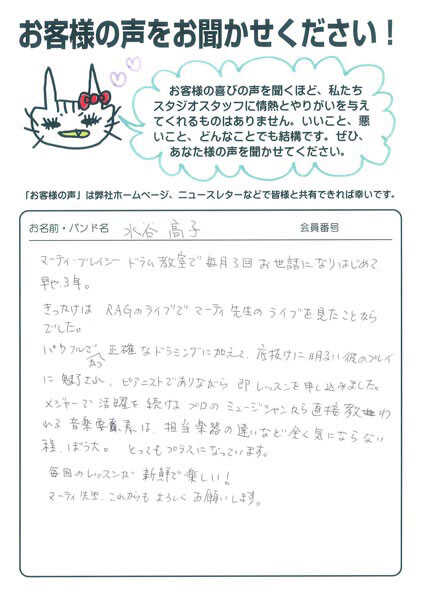 お客様の声をお聞かせください！
お客様の喜びの声を聞くほど、私たち
スタジオスタッフに情熱とやりがいを与え
てくれるものはありません。いいこと、悪
いこと、どんなことでも結構です。ぜひ、
あなた様の声を聞かせてください。
「お客様の声」は弊社ホームページ、ニュースレターなどで皆様と共有できれば幸いです。
お名前・バンド名 水谷 高子 会員番号
マーティ・ブレイシー ドラム教室で 毎月3回 お世話になりはじめて
早や3年。
きっかけは RAGのライブで マーティ先生の ライブを見たことから
でした。
パワフルで かつ 正確なドラミングに加えて、底抜けに明るい彼のプレイ
に 魅了され、ピアニストでありながら 即 レッスンを申し込みました。
メジャーで 活躍を 続ける プロの ミュージシャンから 直接 教わ
れる 音楽要素は、担当楽器の 違いなど 全く 気にならない
程、ぼう大。 とっても プラスになっています。
毎回のレッスンが 新鮮で 楽しい！
マーティ先生、これからも よろしく お願いします。